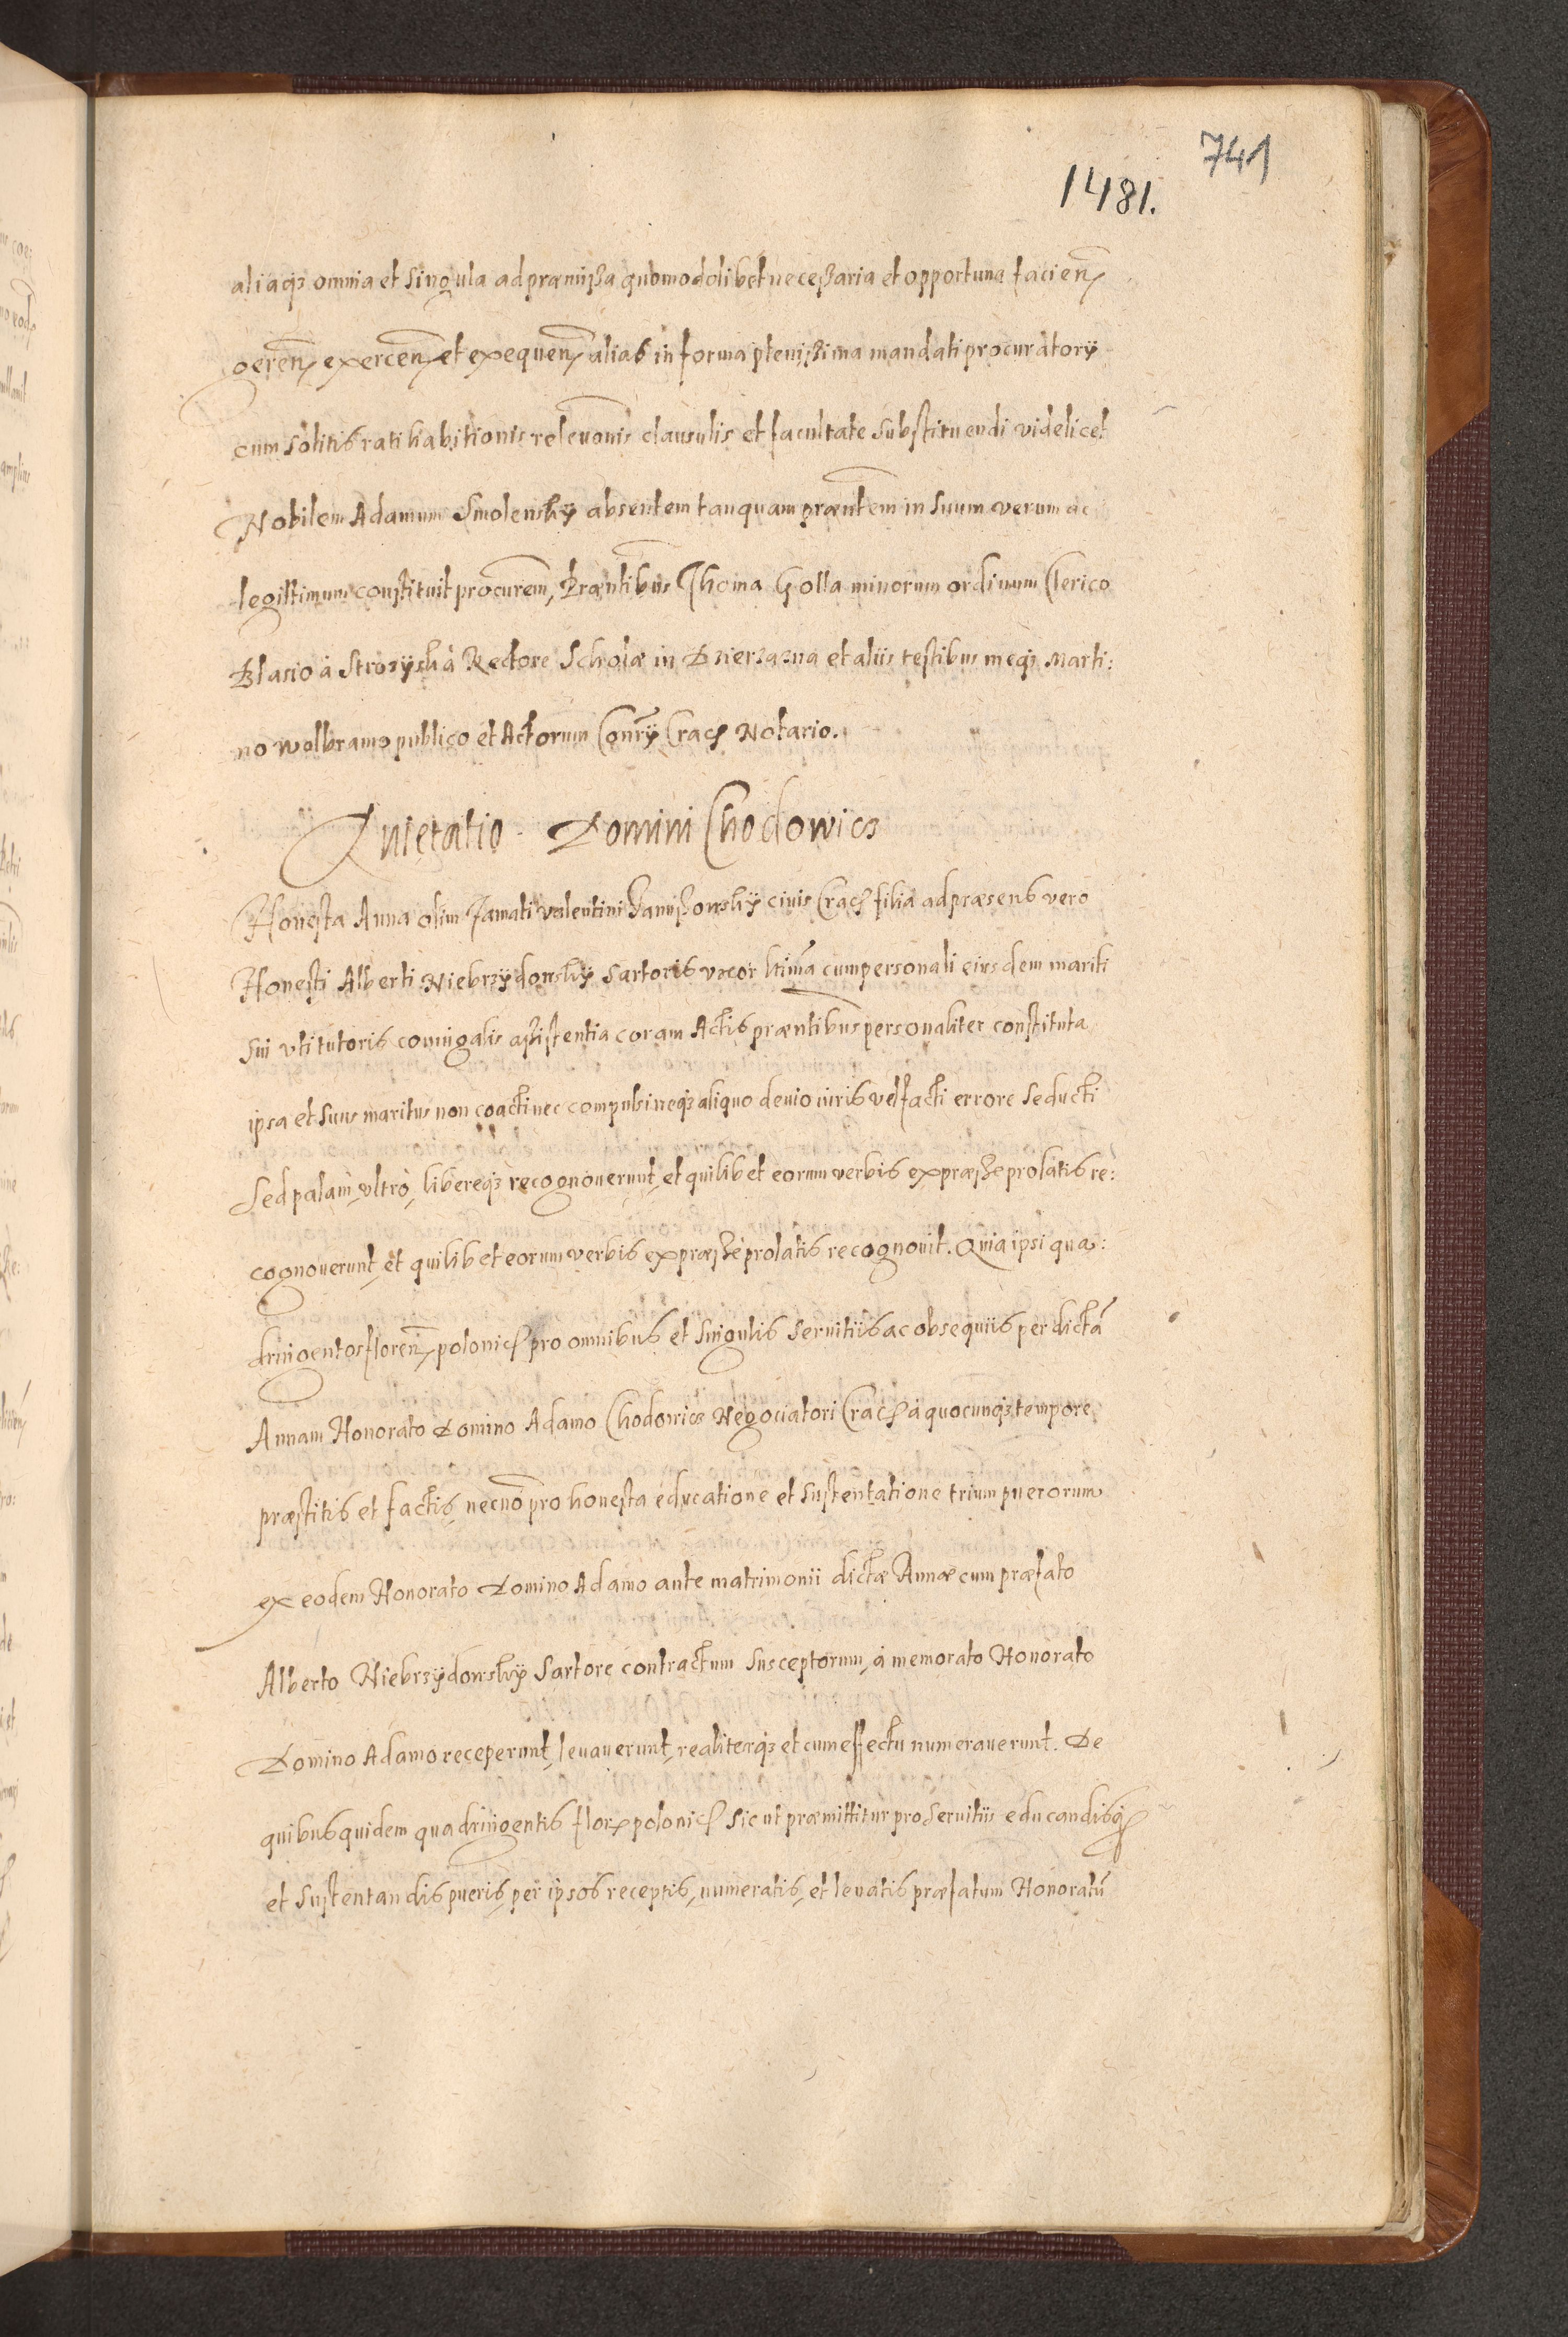 741
1481.
aliaq₃ omnia et singula ad præmißa quomodolibet neceßaria et opportuna facien̄
geren̄ exercen̄ et exequen̄ alias in forma plenißima mandati procuratorÿ
cum solitis ratihabitionis releuōnis clausulis et facultate substituendi videlicet
Nobilem Adamum Smolenskÿ absentem tanquam præntēm in suum verum ac
legittimum constituit procurēm, Præntibūs Thoma Golla minorum ordinum Clerico
Blasio à Strozÿska Rectore Scholæ in Dzierzazna et aliis testibus meq₃ Marti:
no Wolbramo publico et Actorum Conrÿ̄ Crac̄ Notario.
Quietatio Domini Chodowicz
Honesta Anna olim Famati Valentini Janußowskÿ ciuis Crac̄ filia ad præsens vero
Honesti Alberti Niebrzÿdowskÿ Sartoris vxor ltima̅ cum personali eiusdem mariti
sui vti tutoris coniugalis aßistentia coram Actis præntibūs personaliter constituta
ipsa et suus maritus non coacti nec compulsi neq₃ aliquo deuio iuris vel facti errore seducti
sed palam, vltrò, libereq₃ recognouerunt, et quilibet eorum verbis expræße prolatis re:
cognouerunt, et quilibet eorum verbis expræßè prolatis recognouit. Quia ipsi qua:
dringentos floren̄ polonic̄ pro omnibus et singulis seruitiis ac obsequiis per dictā
Annam Honorato Domino Adamo Chodowicz Negociatori Crac̄ à quocunq₃ tempore
præstitis et factis, necnō pro honesta educatione et sustentatione trium puerorum
ex eodem Honorato Domino Adamo ante matrimonii dictæ Annæ cum præfato
Alberto Niebrzÿdowskÿ Sartore contractum susceptorum, à memorato Honorato
Domino Adamo receperunt, leuauerunt, realiterq₃ et cum effectu numerauerunt. De
quibus quidem quadringentis flor̄ polonic̄ sicut præmittitur pro seruitiis educandisq₃
et sustentandis pueris, per ipsos receptis, numeratis, et leuatis præfatum Honoratū